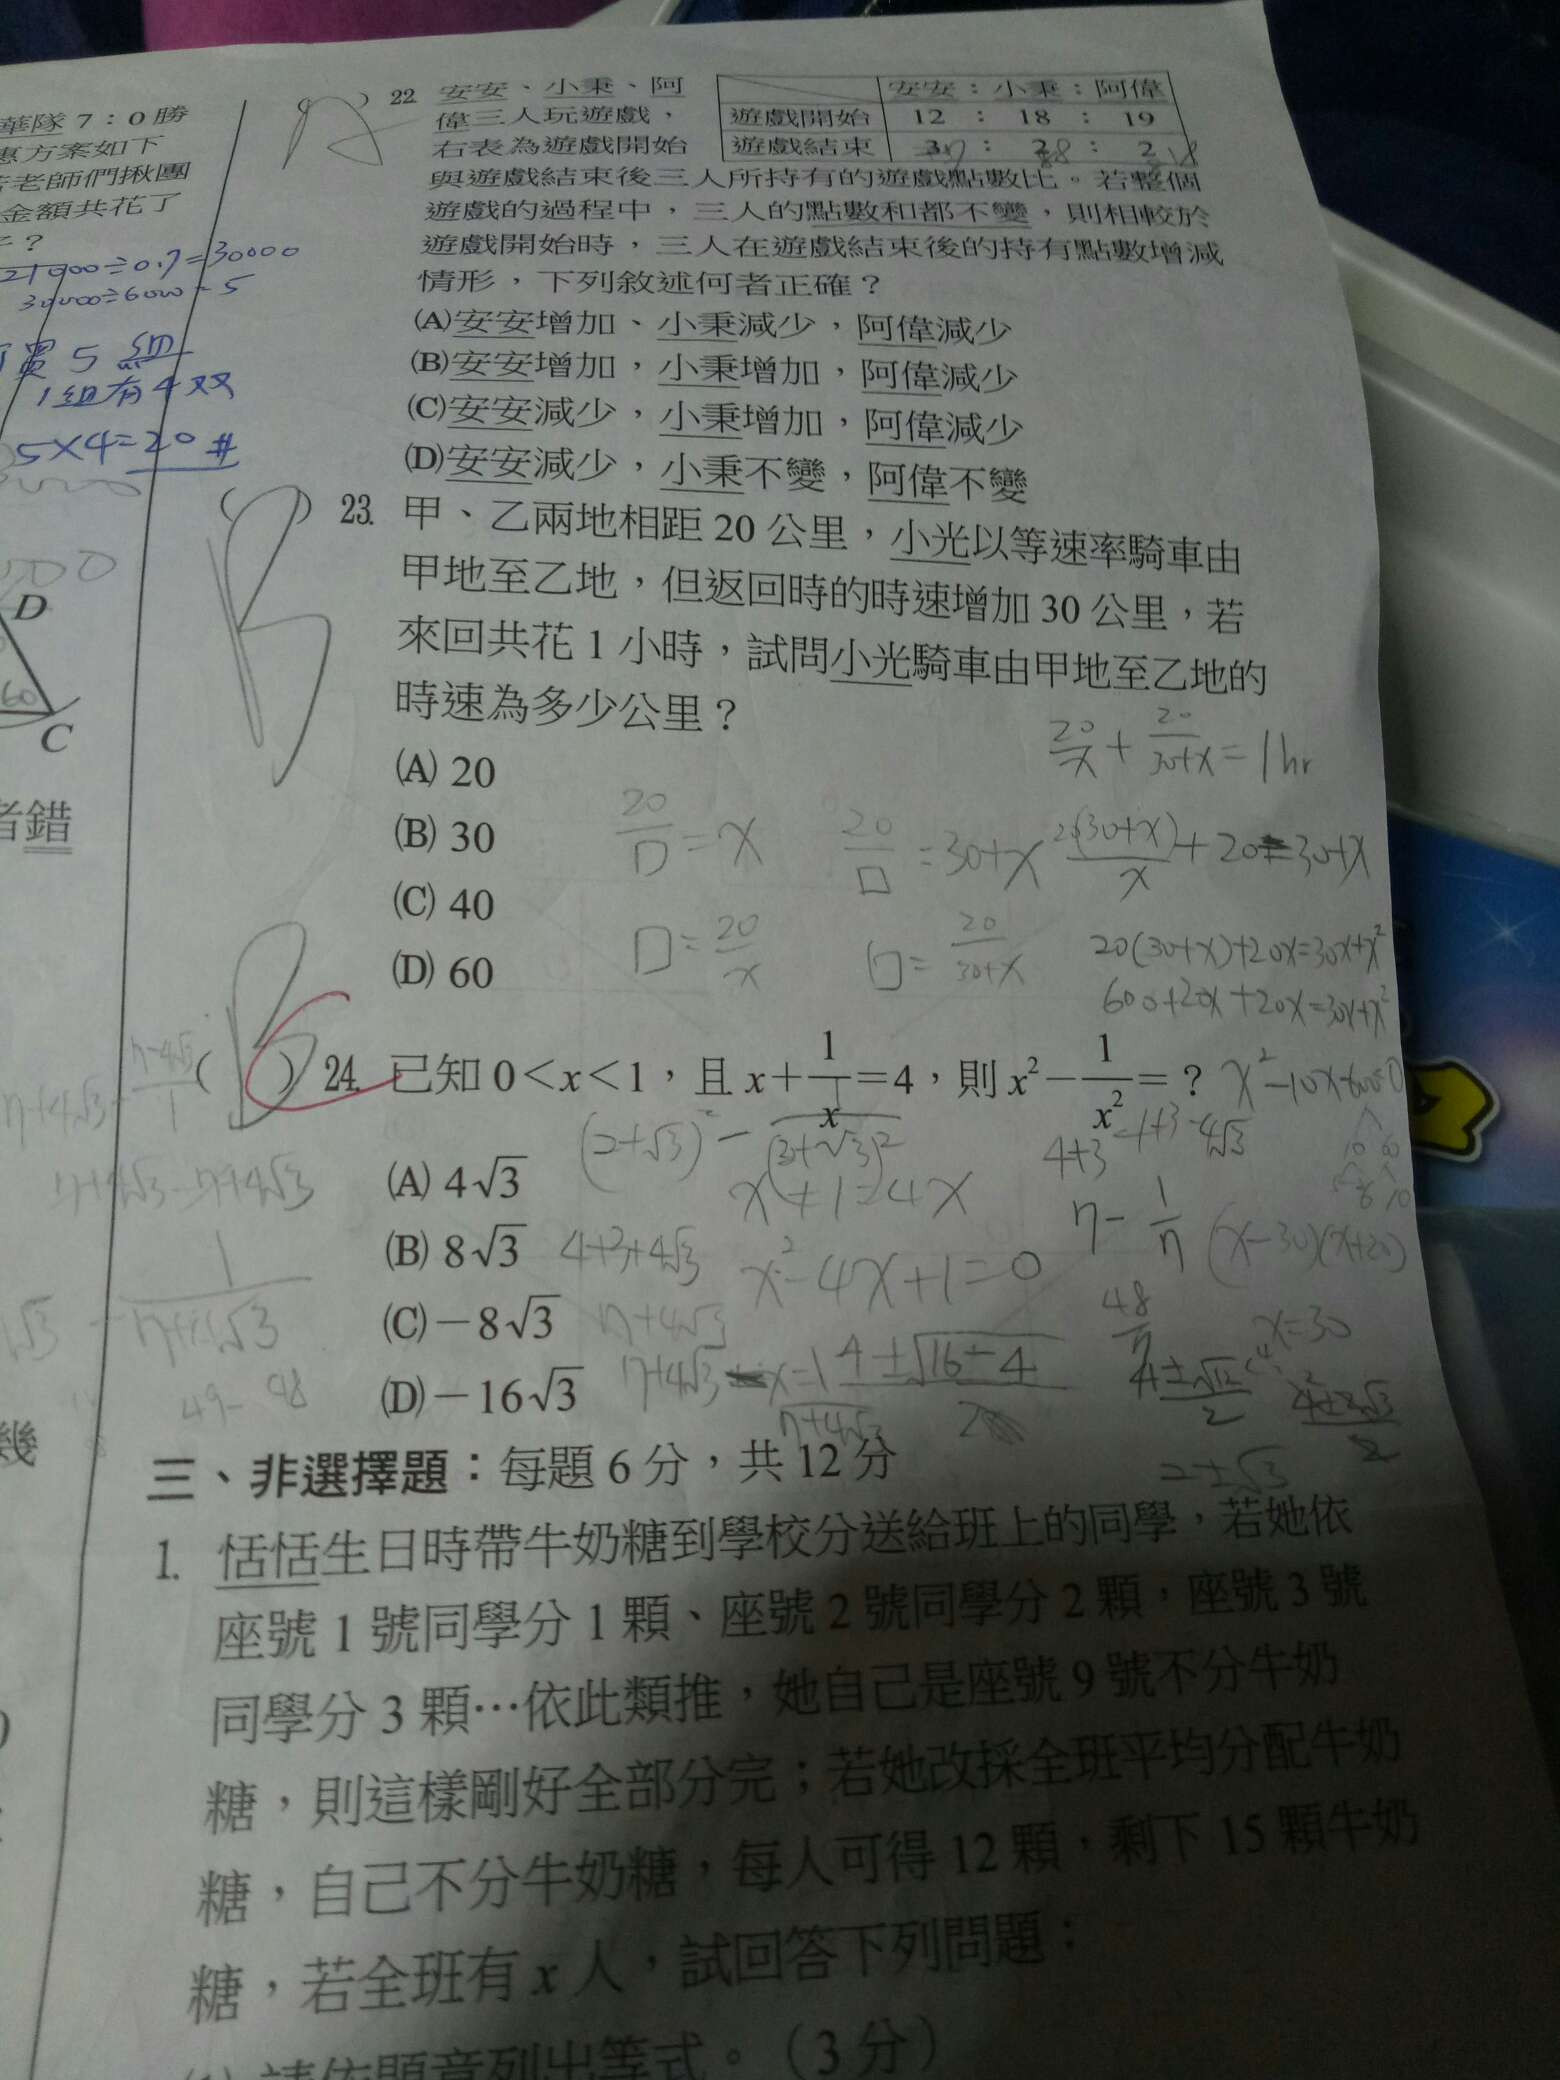 華隊 7：0 勝
惠方案如下
老師們揪團
金額共花了
？
21000÷0.7=30000
30000÷6000=5
買 5 組
1組有4双
5×4=20 #
D
60
C
者錯
幾
22. 安安、小秉、阿
偉三人玩遊戲，
右表為遊戲開始
安安：小秉：阿偉
遊戲開始 12 ： 18 ： 19
遊戲結束 3 ： 2 ： 2
與遊戲結束後三人所持有的遊戲點數比。若整個
遊戲的過程中，三人的點數和都不變，則相較於
遊戲開始時，三人在遊戲結束後的持有點數增減
情形，下列敘述何者正確？
(A)安安增加、小秉減少，阿偉減少
(B)安安增加，小秉增加，阿偉減少
(C)安安減少，小秉增加，阿偉減少
(D)安安減少，小秉不變，阿偉不變
B
( ) 23. 甲、乙兩地相距 20 公里，小光以等速率騎車由
甲地至乙地，但返回時的時速增加 30 公里，若
來回共花 1 小時，試問小光騎車由甲地至乙地的
時速為多少公里？
20/x + 20/30+x = 1hr
(A) 20
(B) 30
20/□ = x
20/□ = 30+x
20(30+x)/x + 20 = 30+x
(C) 40
□ = 20/x
□ = 20/30+x
20(30+x)+20x=30x+x²
(D) 60
600+20x+20x=30x+x²
B
( ) 24. 已知 0＜x＜1，且 x＋1/x＝4，則 x²－1/x²＝？
x²-10x-600=0
(A) 4√3
x²+1=4x
(B) 8√3
4+3+4√3
x²-4x+1=0
(x-30)(x+20)
(C)－8√3
7+4√3
x=30
(D)－16√3
2±√3
三、非選擇題：每題 6 分，共 12 分
1. 恬恬生日時帶牛奶糖到學校分送給班上的同學，若她依
座號 1 號同學分 1 顆、座號 2 號同學分 2 顆，座號 3 號
同學分 3 顆…依此類推，她自己是座號 9 號不分牛奶
糖，則這樣剛好全部分完；若她改採全班平均分配牛奶
糖，自己不分牛奶糖，每人可得 12 顆，剩下 15 顆牛奶
糖，若全班有 x 人，試回答下列問題：
(1) 請依題意列出等式。（3 分）